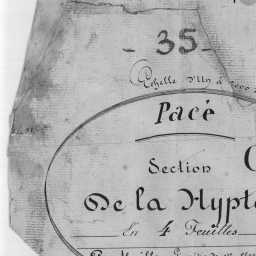 - 35 -
Echelle d'Un à 2000
Pacé
Section C
De la Hypt
En 4 Feuilles